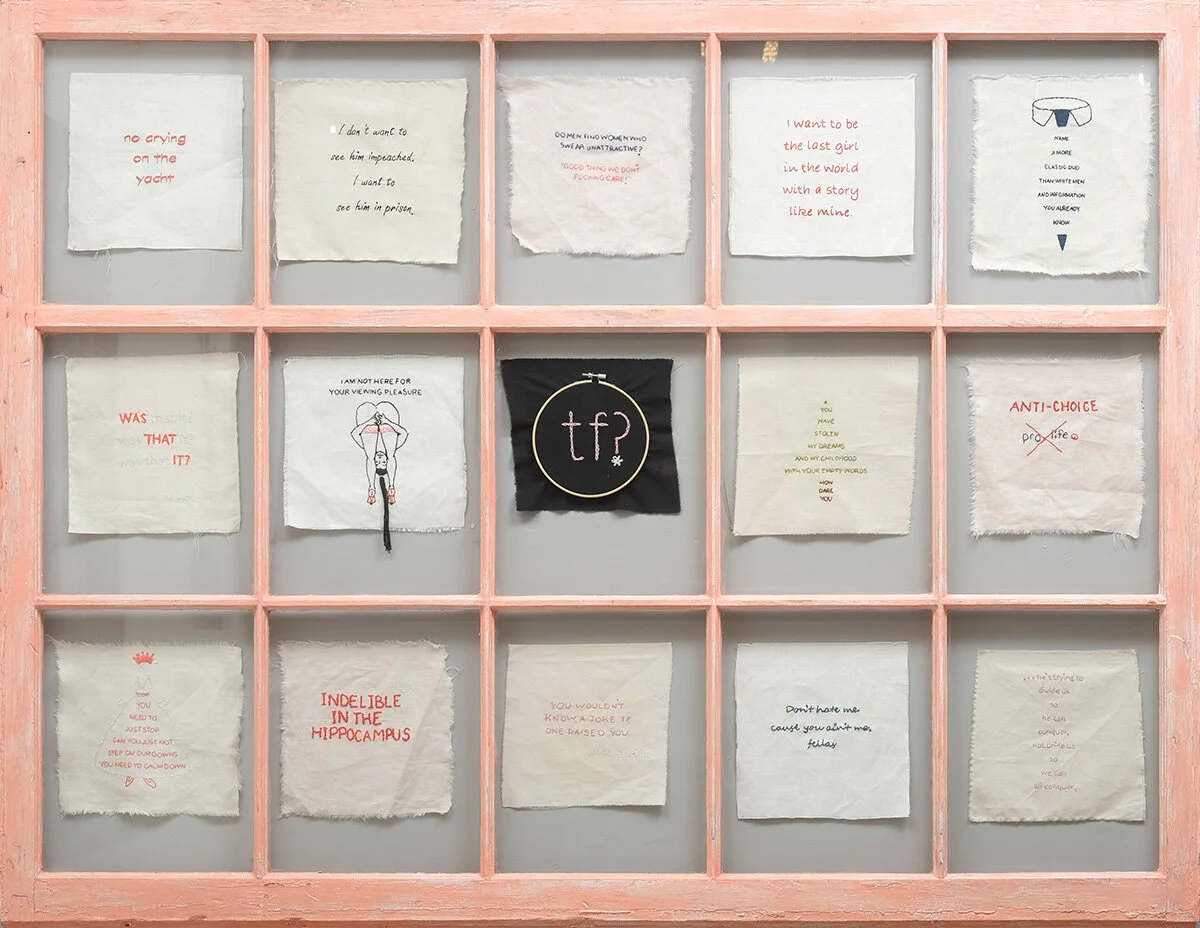 no crying
on the
yacht
I don't want to
see him impeached.
I want to
see him in prison
DO MEN FIND WOMEN WHO
SWEAR UNATTRACTIVE?
"GOOD THING WE DON'T
FUCKING CARE!"
I want to be
the last girl
in the world
with a story
like mine.
NAME
A MORE
CLASSIC DUO
THAN WHITE MEN
AND INFORMATION
YOU ALREADY
KNOW
WAS
THAT
IT?
I AM NOT HERE FOR
YOUR VIEWING PLEASURE
tf?*
YOU
HAVE
STOLEN
MY DREAMS
AND MY CHILDHOOD
WITH YOUR EMPTY WORDS
HOW
DARE
YOU
ANTI-CHOICE
pro life
YOU
NEED TO
JUST STOP
CAN YOU JUST NOT
STEP ON OUR GOWNS
YOU NEED TO CALM DOWN
INDELIBLE
IN THE
HIPPOCAMPUS
YOU WOULDN'T
KNOW A JOKE IF
ONE RAISED YOU
Don't hate me
cause you ain't me,
fellas
...he's trying to
divide us
so
he can
conquer,
not unite us
so
we can
all conquer.